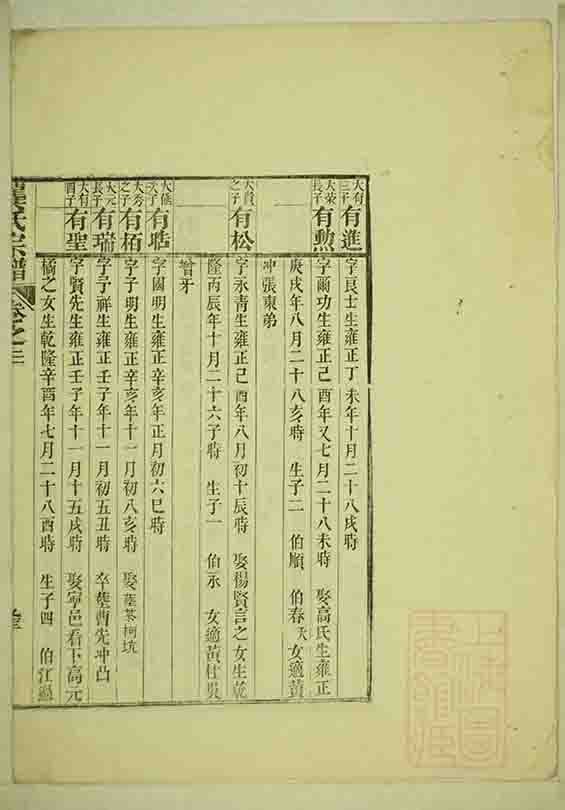 大有三子有進字良士生雍正丁未年十月二十八戌時
大榮長子有勲字爾功生雍正己酉年又七月二十八未時 娶高氏生雍正
庚戌年八月二十八亥時 生子二 伯順 伯春 女適黃
冲張東弟
之子有松字永青生雍正己酉年八月初十辰時 娶楊賢言之女生乾
隆丙辰年十月二十六子時 生子一 伯永 女適黃杜
曾牙
次子有字國明生雍正辛亥年正月初六巳時
大秀之子有栢字子明生雍正辛亥年十一月初八亥時 娶坑
大元長子有瑞字予祥生雍正壬子年十一月初五丑時 卒葬曹先冲凸
大有四子有聖字賢先生雍正壬子年十一月十五戌時 娶寧邑看下高元
橘之女生乾隆辛酉年七月二十八酉時 生子四 伯江
氏宗譜 卷之二
上圖書館